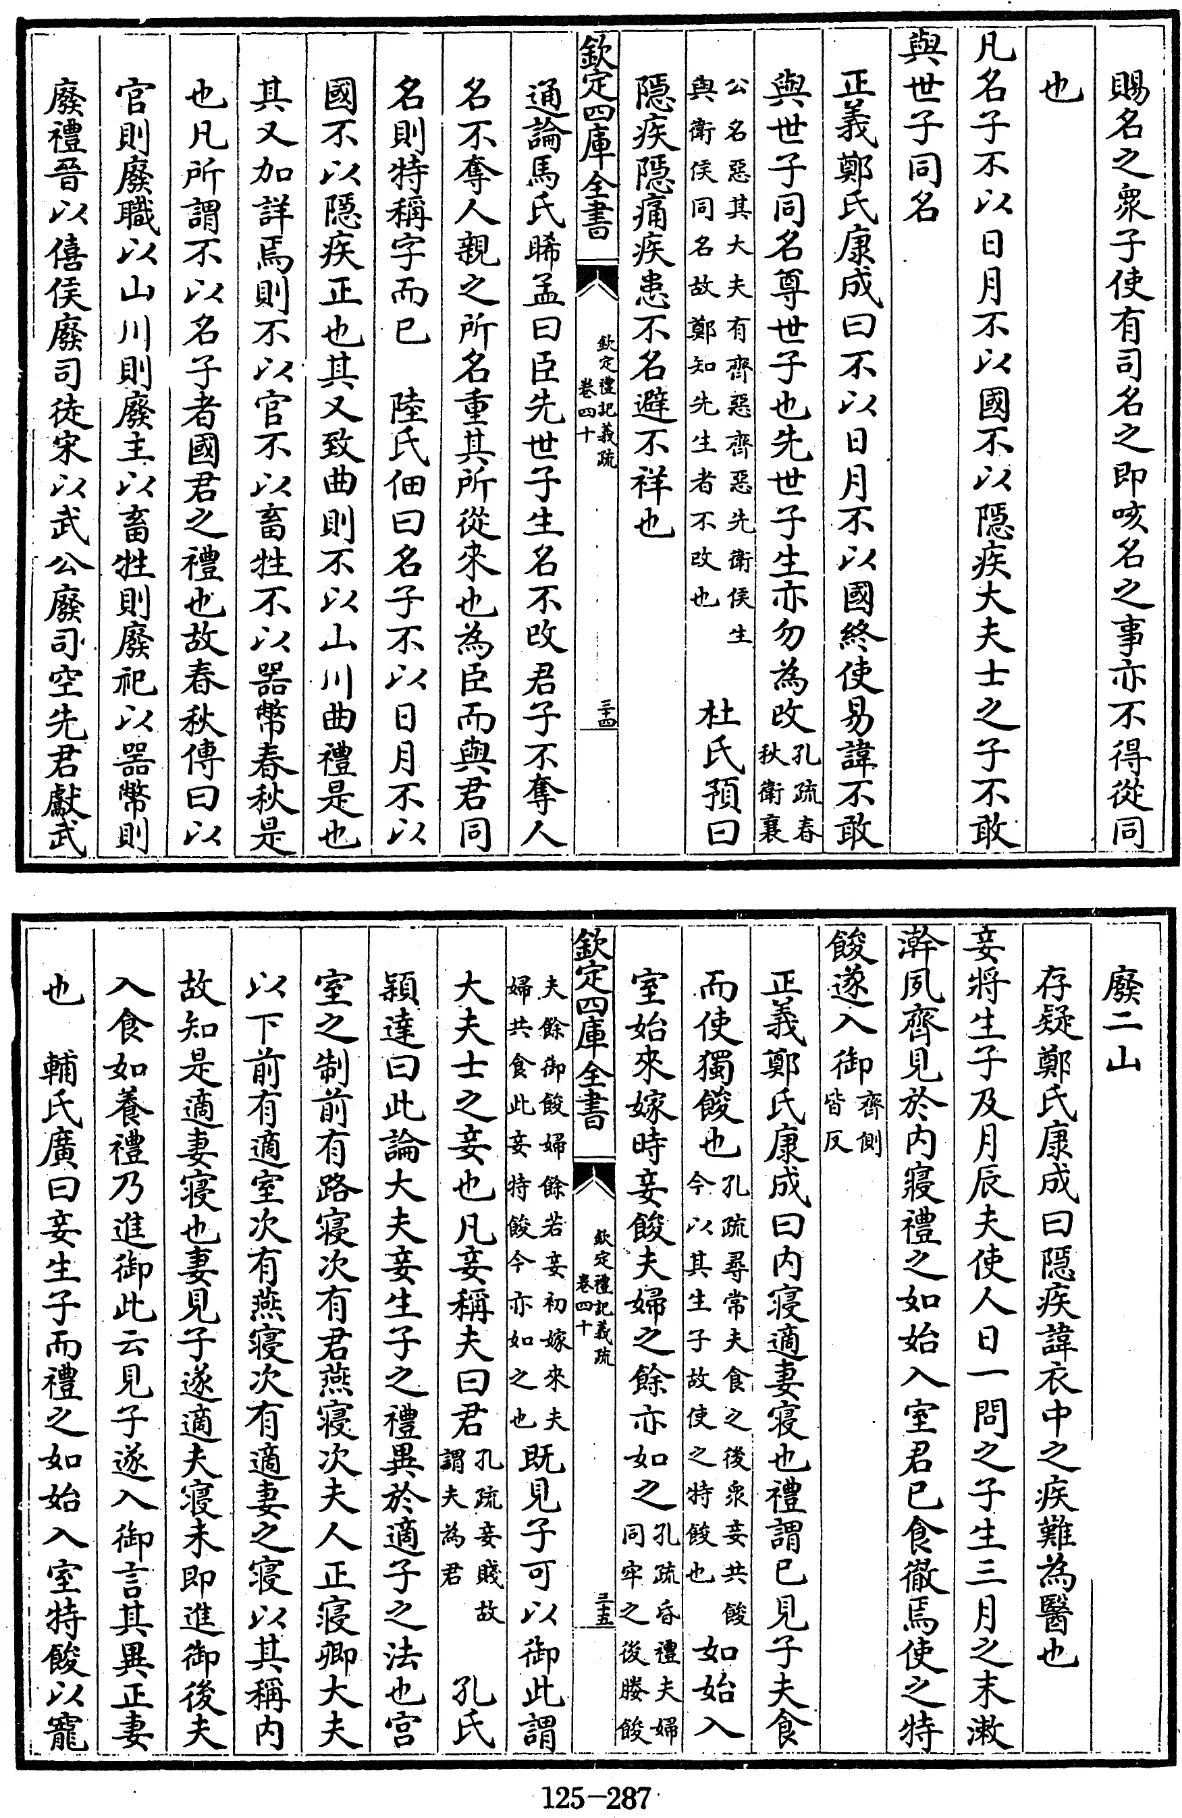 賜名之衆子使有司名之即咳名之事亦不得從同
也
凡名子不以日月不以國不以隱疾大夫士之子不敢
與世子同名
正義鄭氏康成曰不以日月不以國終使易諱不敢
與世子同名尊世子也先世子生亦勿為改孔疏春秋衛襄
公名惡其大夫有齊惡齊惡先衛侯生與衛侯同名故鄭知先生者不改也 杜氏預曰
隱疾隱痛疾患不名避不祥也
欽定四庫全書 欽定禮記義疏 卷四十 三十四
通論馬氏晞孟曰臣先世子生名不改君子不奪人
名不奪人親之所名重其所從來也為臣而與君同
名則特稱字而已 陸氏佃曰名子不以日月不以
國不以隱疾正也其又致曲則不以山川曲禮是也
其又加詳焉則不以官不以畜牲不以器幣春秋是
也凡所謂不以名子者國君之禮也故春秋傳曰以
官則廢職以山川則廢主以畜牲則廢祀以器幣則
廢禮晉以僖侯廢司徒宋以武公廢司空先君獻武
廢二山
存疑鄭氏康成曰隱疾諱衣中之疾難為醫也
妾將生子及月辰夫使人日一問之子生三月之末漱
澣夙齊見於内寢禮之如始入室君已食徹焉使之特
餕遂入御齊側皆反
正義鄭氏康成曰内寢適妻寢也禮謂已見子夫食
而使獨餕也孔疏尋常夫食之後衆妾共餕今以其生子故使之特餕也 如始入
室始來嫁時妾餕夫婦之餘亦如之孔疏昏禮夫婦同牢之後媵餕
欽定四庫全書 欽定禮記義疏 卷四十 三十五
夫餘御餕婦餘若妾初嫁來夫婦共食此妾特餕今亦如之也既見子可以御此謂
大夫士之妾也凡妾稱夫曰君孔疏妾賤故謂夫為君 孔氏
穎達曰此論大夫妾生子之禮異於適子之法也宫
室之制前有路寢次有君燕寢次夫人正寢卿大夫
以下前有適室次有燕寢次有適妻之寢以其稱内
故知是適妻寢也妻見子遂適夫寢未即進御後夫
入食如養禮乃進御此云見子遂入御言其異正妻
也 輔氏廣曰妾生子而禮之如始入室特餕以寵
125-287